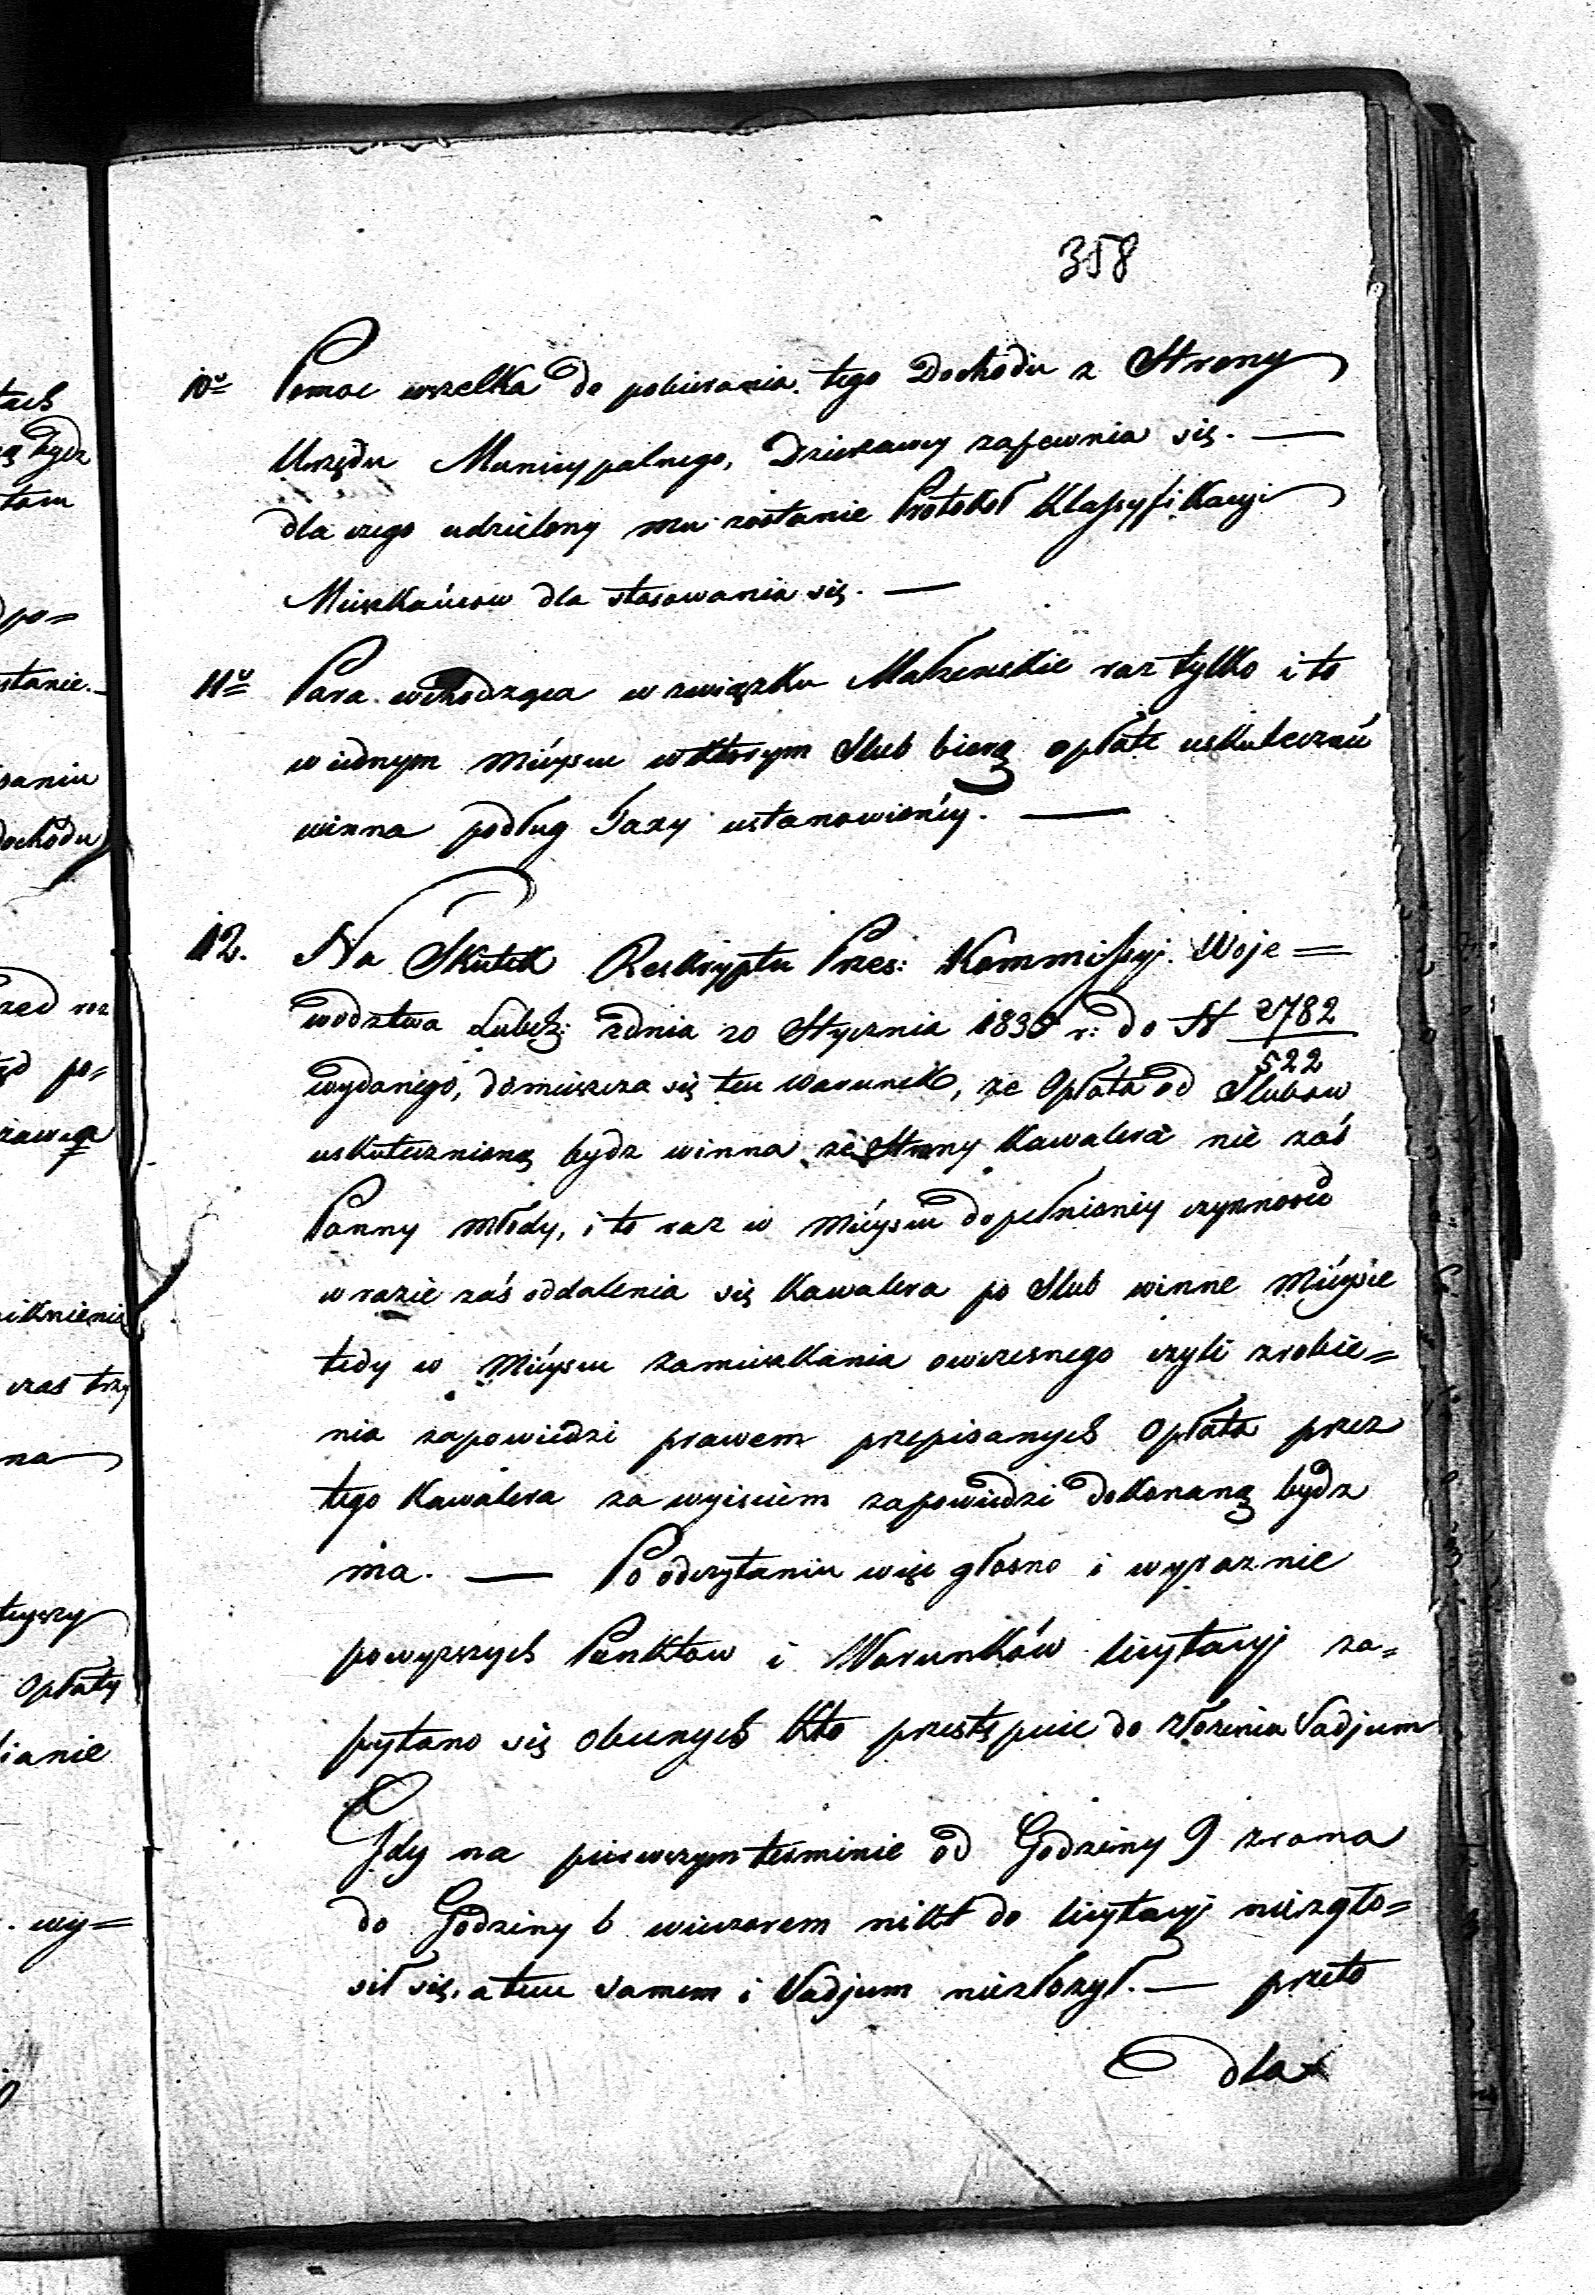 358
10º Pomoc wszelka do pobierania tego Dochodu z Strony
Urzędu Municypalnego, Dzierzawcy zapewnia się. —
dla czego udzielony mu zostanie Protokoł Klassyfikacyi
Mieszkańcow dla stosowania się. —
11º Para wchodząca w związku Małzenskie raz tylko i to
w iednym Mieyscu w ktorym Slub biorą opłate uskutecznić
winna podług Taxy ustanowioney. —
12. Na Skutek Reskryptu Prześ: Kommissyi Woje=
wodztwa Lubelz: z dnia 20 Stycznia r: do N 2782
522
wydanego, domieszcza się ten Warunek, ze Opłata od Slubow
uskutecznioną bydz winna ze Strony Kawalera nie zaś
Panny młody, i to raz w Mieyscu dopełnioney czynnosci
w razie zaś oddalenia się Kawalera po Slub w inne Mieysce
tedy w Mieyscu zamieszkania owczesnego czyli zrobie=
nia zapowiedzi prawem przepisanych Opłata przez
tego Kawalera za wyisciem zapowiedzi dokonaną bydz
ma. — Po odczytaniu więc głosno i wyraznie
powyzszych Punktow i Warunków licytacyi za=
pytano się obecnych kto przestępuie do złozenia Vadjum
Gdy na pierwszym terminie od Godziny 9 zrana
do Godziny 6 wieczorem nikt do licytacyi niezgło=
sił się, a tem samem i Vadjum niezłozył. — przeto
dla
tach
bydz
tam
po=
stanie. —
saniu
dochodu
rzed roz
po=
czas trzy
na
Opłaty
ianie
. wy=